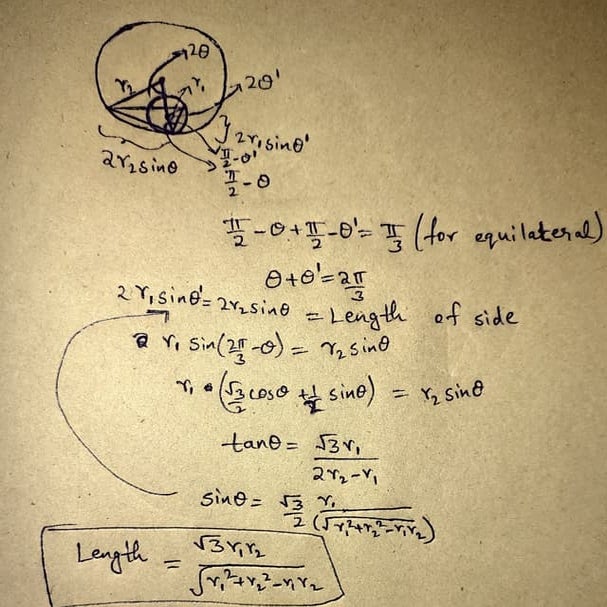 2θ
r₂
r₁
2θ'
2r₂sinθ
2r₁sinθ'
π/2-θ'
π/2-θ
π/2-θ+π/2-θ'=π/3 (for equilateral)
θ+θ'=2π/3
2r₁sinθ'=2r₂sinθ = Length of side
r₁ sin(2π/3-θ) = r₂sinθ
r₁ (√3/2 cosθ + 1/2 sinθ) = r₂ sinθ
tanθ = √3r₁/(2r₂-r₁)
sinθ = √3/2 r₁/(√r₁²+r₂²-r₁r₂)
Length = √3r₁r₂/√(r₁²+r₂²-r₁r₂)